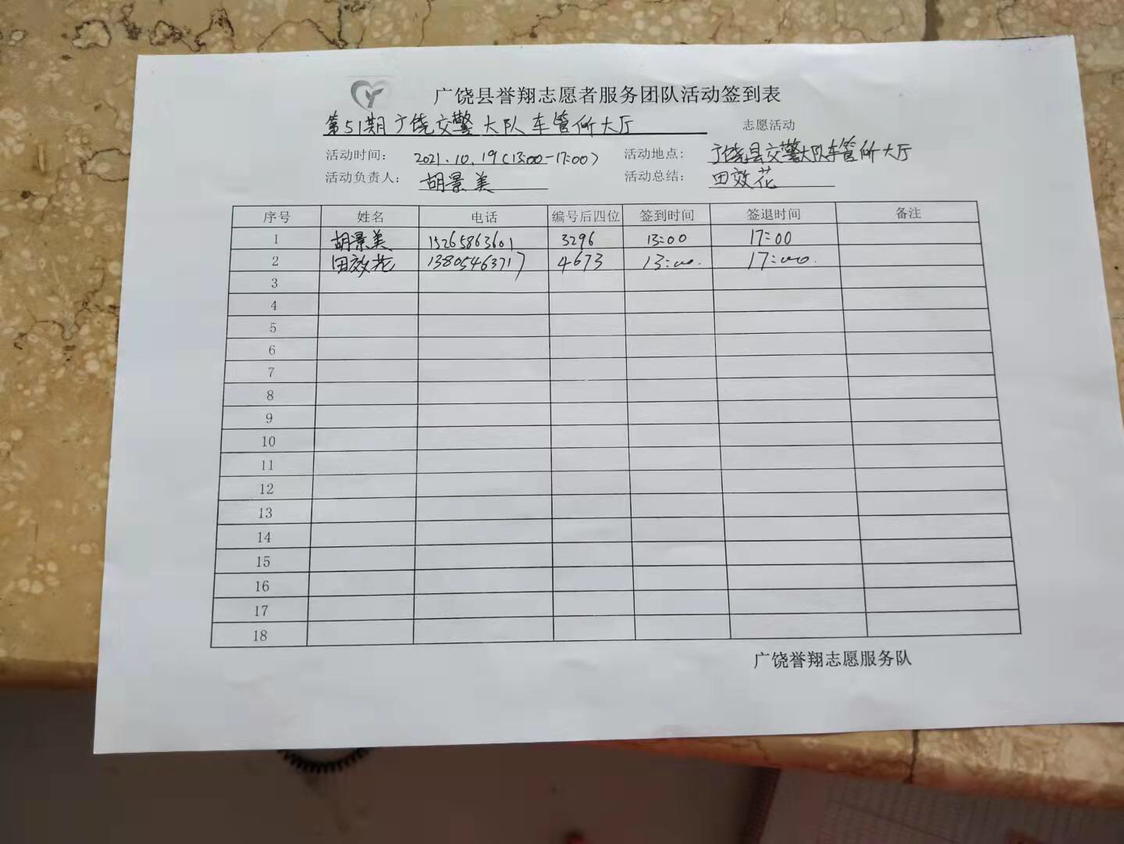 广饶县誉翔志愿者服务团队活动签到表
第51期广饶交警大队车管所大厅 志愿活动
活动时间: 2021.10.19(13:00-17:00) 活动地点: 广饶县交警大队车管所大厅
活动负责人: 胡景美 活动总结: 田效花
序号 姓名 电话 编号后四位 签到时间 签退时间 备注
1 胡景美 15265863601 3296 13:00 17:00
2 田效花 13805463717 4673 13:00. 17:00.
3
4
5
6
7
8
9
10
11
12
13
14
15
16
17
18
广饶誉翔志愿服务队